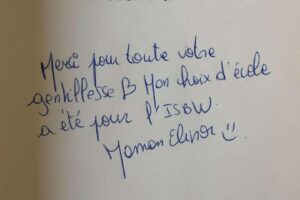 Merci pour toute votre
gentillesse B Mon choix d'école
a été pour l'ISBW.
Maman :)